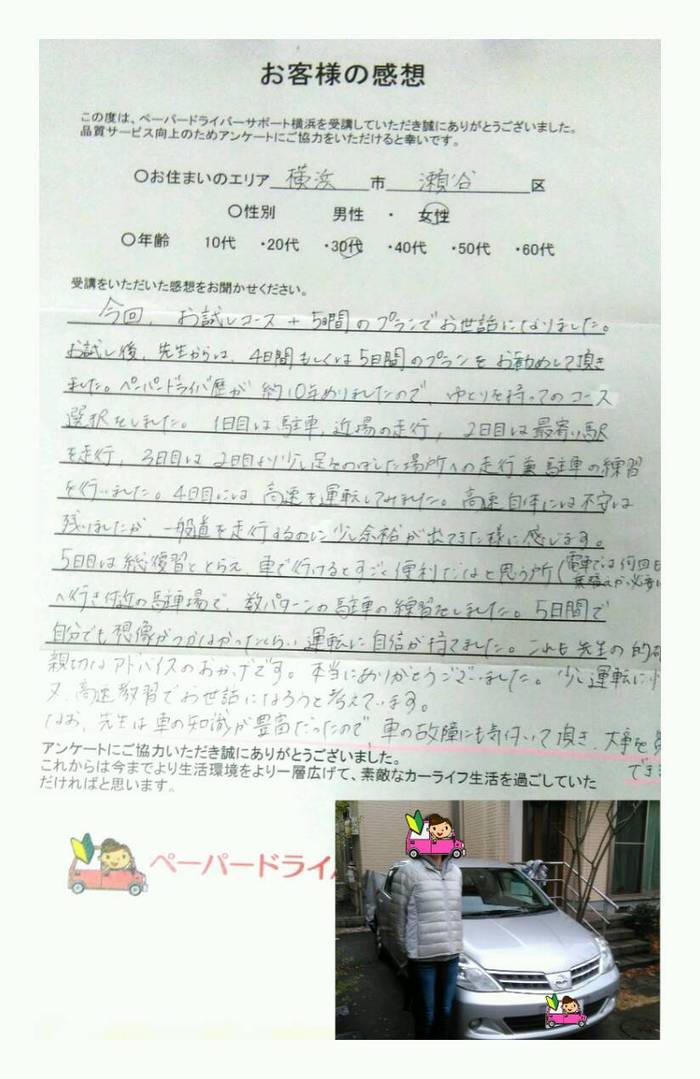 お客様の感想
この度は、ペーパードライバーサポート横浜を受講していただき誠にありがとうございました。
品質サービス向上のためアンケートにご協力をいただけると幸いです。
〇お住まいのエリア 横浜 市 瀬谷 区
〇性別 男性 ・ 女性
〇年齢 10代 ・20代 ・30代 ・40代 ・50代 ・60代
受講をいただいた感想をお聞かせください。
今回、お試しコース + 5日間のプランでお世話になりました。
お試し後、先生からは、4日間もしくは5日間のプランをお勧めして頂き
ました。ペーパードライバ歴が約10年ありましたので、ゆとりを持ってのコース
選択をしました。1日目は駐車、近場の走行、2日目は最寄り駅
を走行、3日目は2日目より少し足をのばした場所への走行兼駐車の練習
を行いました。4日目には高速を運転してみました。高速自体には不安は
残りましたが、一般道を走行するのに少し余裕が出てきた様に感じます。
5日目は総復習ととらえ、車で行けるとすごく便利だなと思う所(電車では何回
乗替えが必要
へ行き付近の駐車場で、数パターンの駐車の練習をしました。5日間で
自分でも想像がつかなかったくらい運転に自信が持てました。これも先生の的
親切なアドバイスのおかげです。本当にありがとうございました。少し運転に
又、高速教習でお世話になろうと考えています。
なお、先生は車の知識が豊富だったので、車の故障にも気付いて頂き、大事を
でき
アンケートにご協力いただき誠にありがとうございました。
これからは今までより生活環境をより一層広げて、素敵なカーライフ生活を過ごしていた
だければと思います。
ペーパードライ